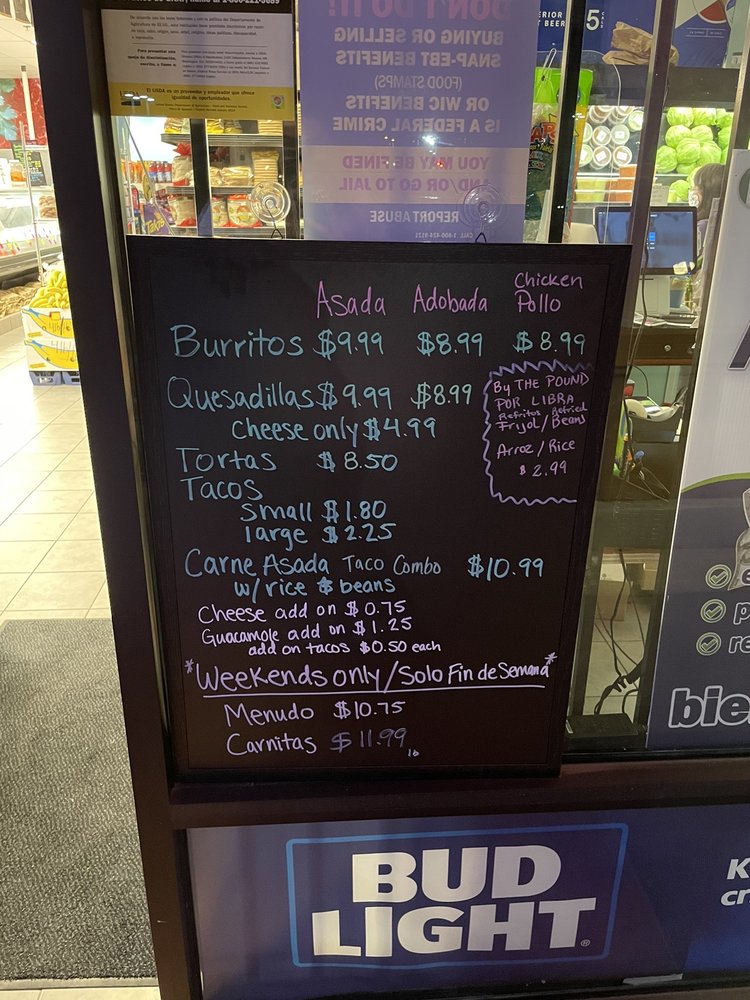 De acuerdo con las leyes federales y con la política del Departamento de
El USDA es un proveedor y empleador que ofrece
igualdad de oportunidades.
DON'T DO IT!
BUYING OR SELLING
SNAP-EBT BENEFITS
(FOOD STAMPS)
OR WIC BENEFITS
IS A FEDERAL CRIME
YOU MAY BE FINED
AND/OR GO TO JAIL
REPORT ABUSE
CALL 1-800-424-9121
5
Asada Adobada Chicken
Pollo
Burritos $9.99 $8.99 $8.99
Quesadillas $9.99 $8.99
Cheese only $4.99
Tortas $8.50
Tacos
Small $1.80
large $2.25
Carne Asada Taco Combo $10.99
w/rice & beans
Cheese add on $0.75
Guacamole add on $1.25
add on tacos $0.50 each
*Weekends only/Solo Fin de Semana*
Menudo $10.75
Carnitas $11.99
lb
By THE POUND
POR LIBRA
Refritos Refried
Frijol/Beans
Arroz/Rice
$2.99
bie
BUD
LIGHT
®
K
cr